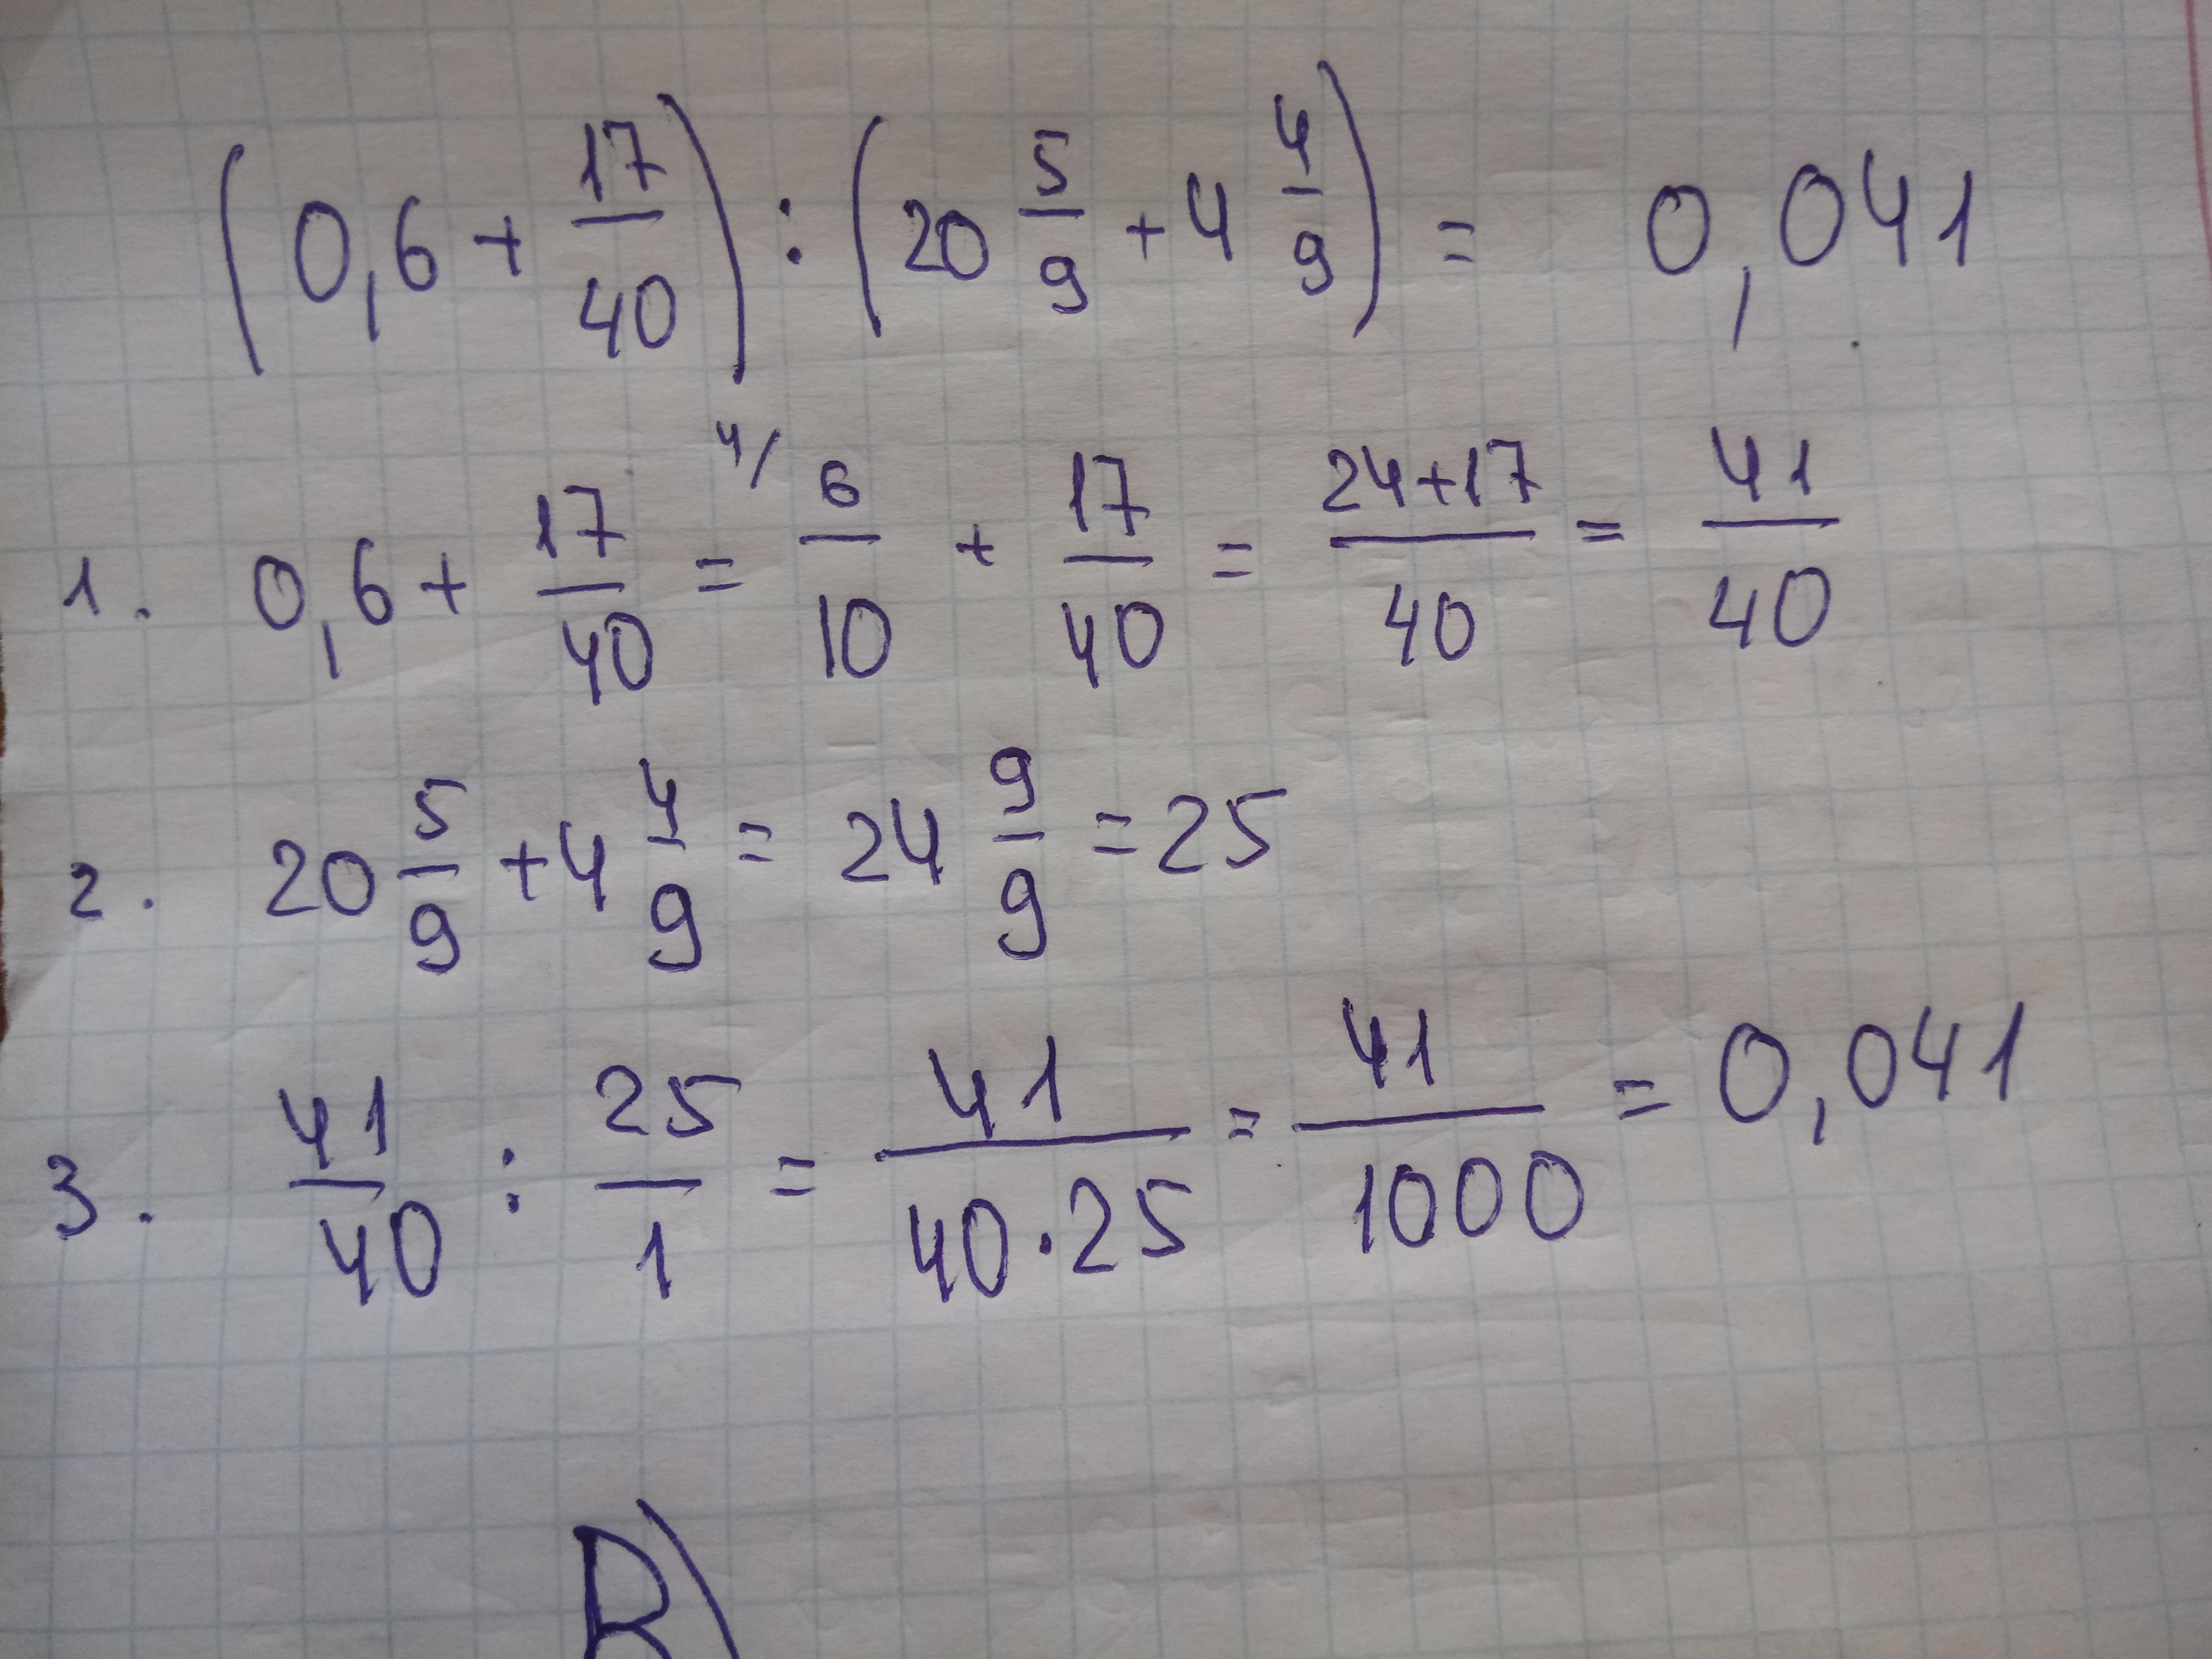 (0,6 + 17/40) : (20 5/9 + 4 4/9) = 0,041
1. 0,6 + 17/40 = 4/ 6/10 + 17/40 = 24+17/40 = 41/40
2. 20 5/9 + 4 4/9 = 24 9/9 = 25
3. 41/40 : 25/1 = 41/40·25 = 41/1000 = 0,041
В)